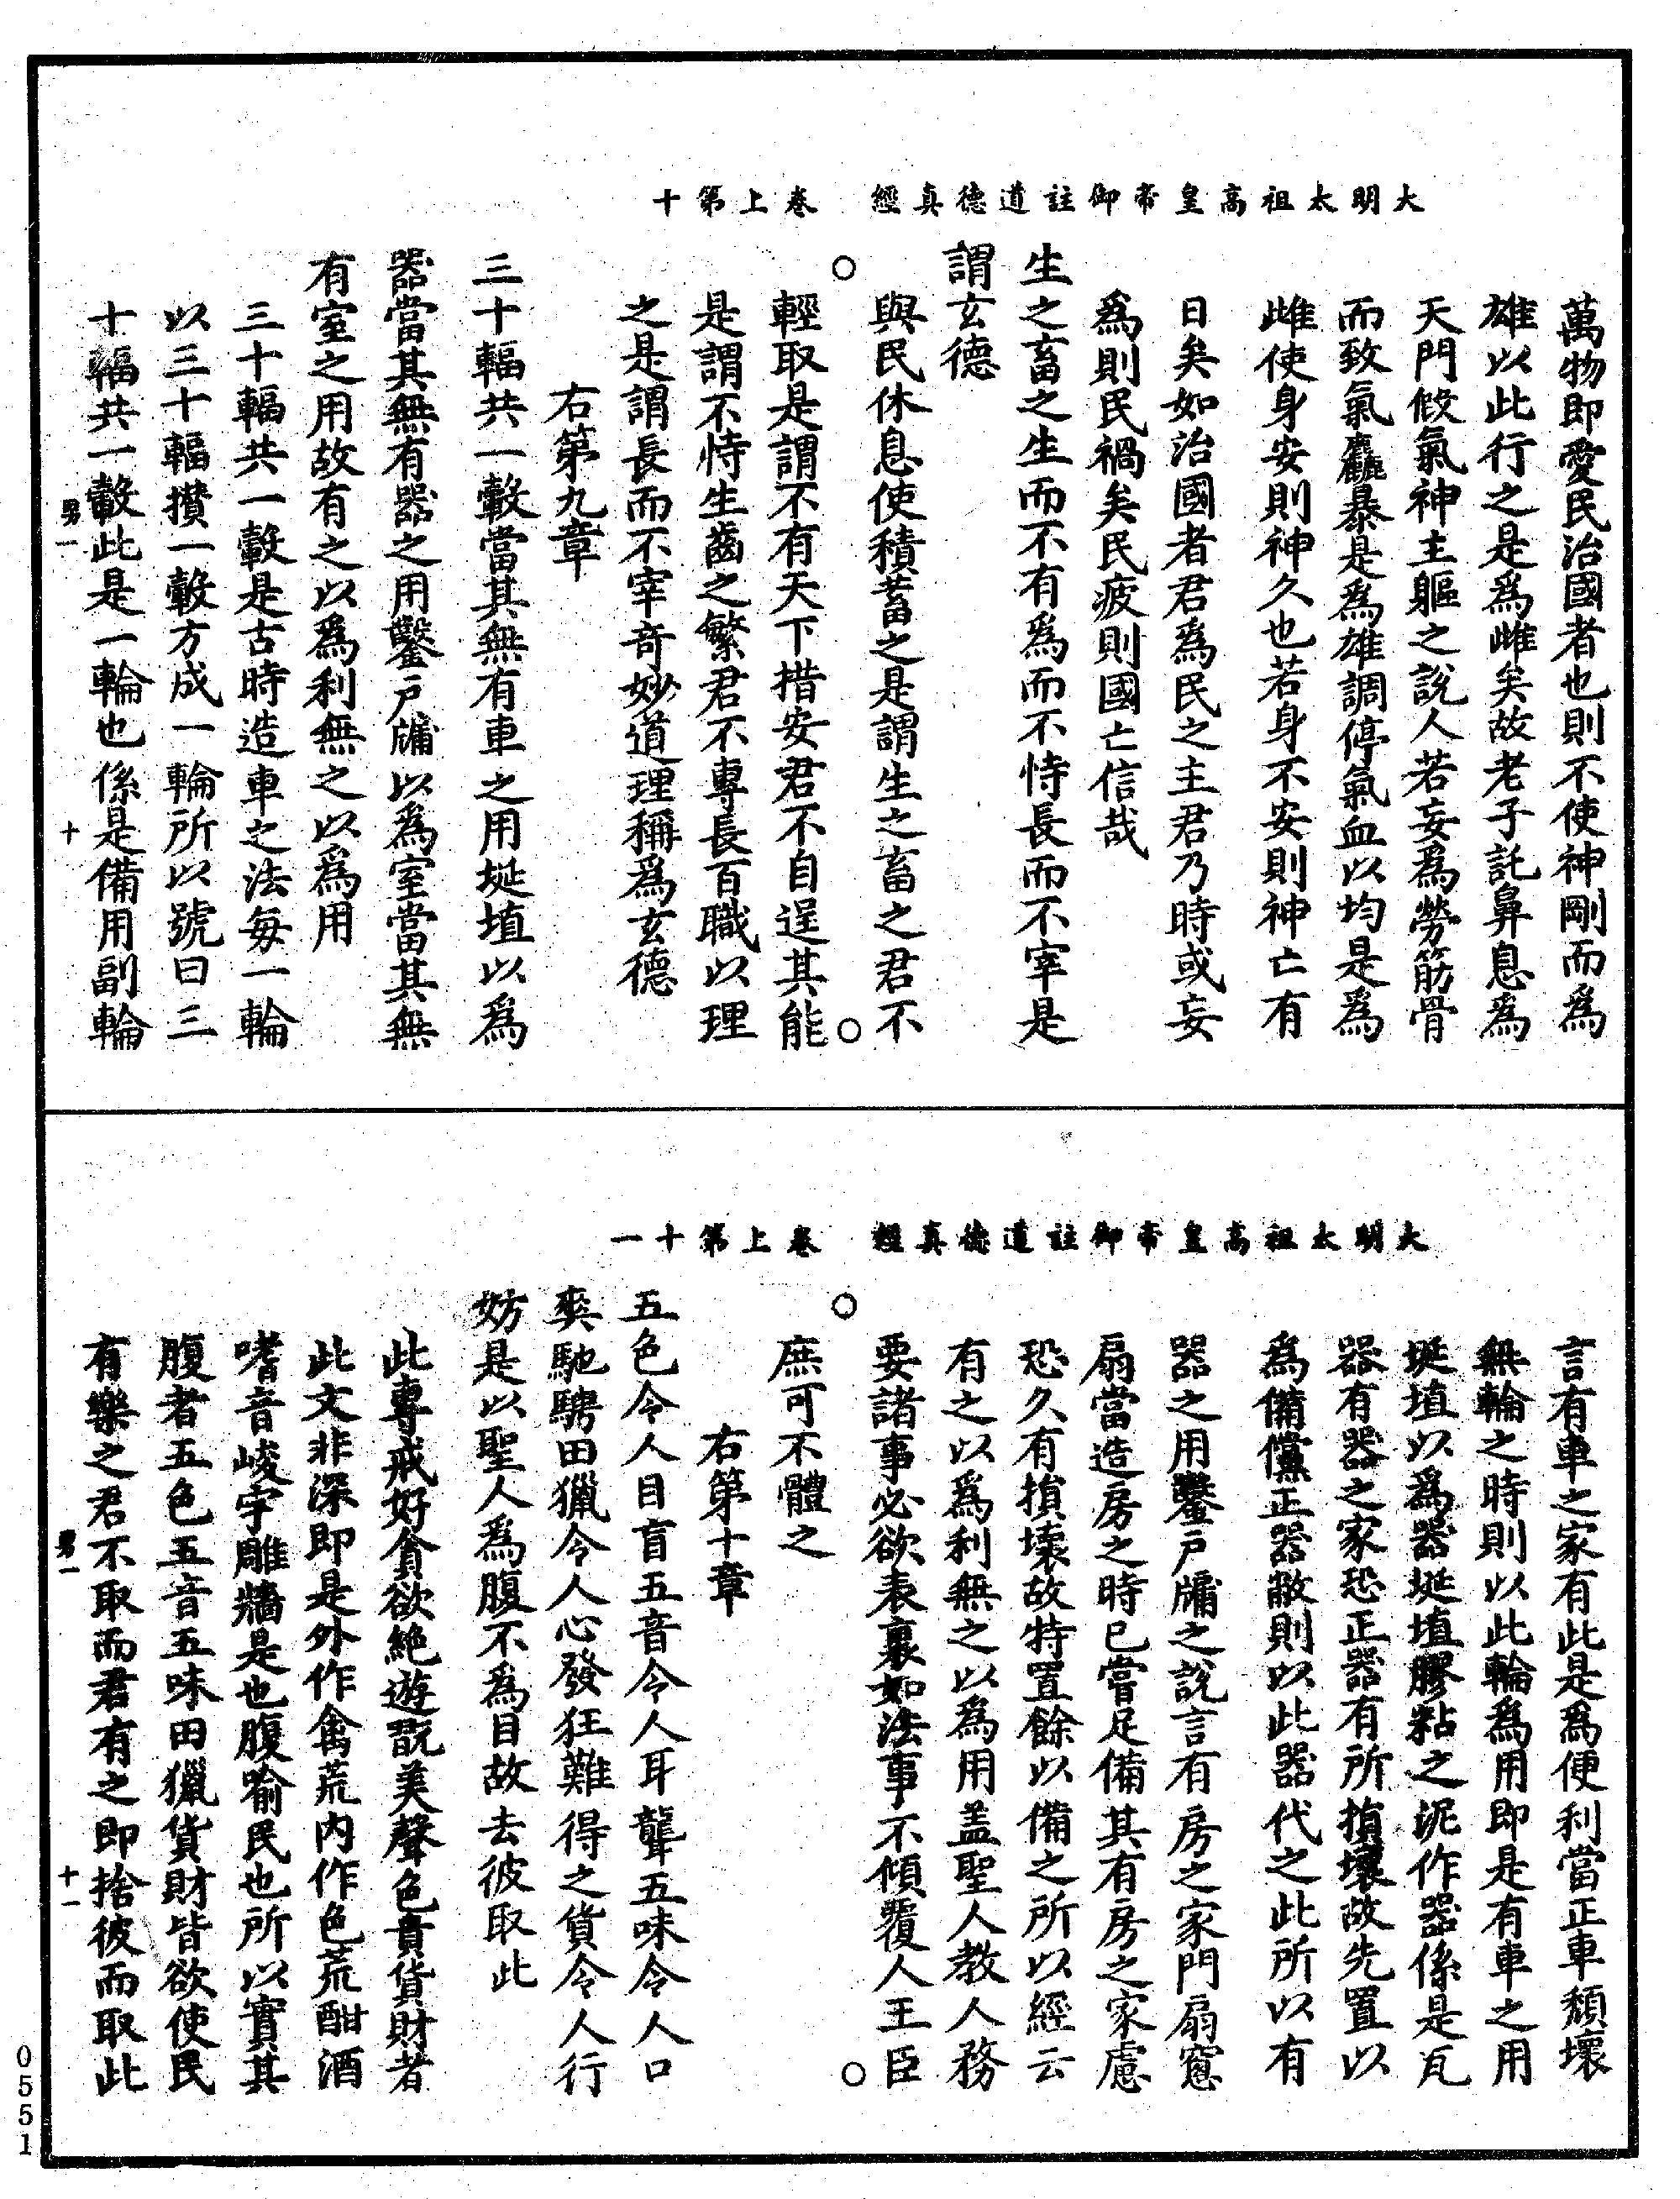 大明太祖高皇帝御註道德真經　卷上第十
萬物即愛民治國者也則不使神剛而爲
雄以此行之是爲雌矣故老子託鼻息爲
天門餀氣神主軀之說人若妄爲勞筋骨
而致氣麤暴是爲雄調停氣血以均是爲
雌使身安則神久也若身不安則神亡有
日矣如治國者君爲民之主君乃時或妄
爲則民禍矣民疲則國亡信哉
生之畜之生而不有爲而不恃長而不宰是
謂玄德
與民休息使積蓄之是謂生之畜之君不
輕取是謂不有天下措安君不自逞其能
是謂不恃生齒之繁君不專長百職以理
之是謂長而不宰奇妙道理稱爲玄德
右第九章
三十輻共一轂當其無有車之用埏埴以爲
器當其無有器之用鑿戶牖以爲室當其無
有室之用故有之以爲利無之以爲用
三十輻共一轂是古時造車之法每一輪
以三十輻攢一轂方成一輪所以號曰三
十輻共一轂此是一輪也係是備用副輪
男一　十
大明太祖高皇帝御註道德真經　卷上第十一
言有車之家有此是爲便利當正車頹壞
無輪之時則以此輪爲用即是有車之用
埏埴以爲器埏埴膠粘之泥作器係是瓦
器有器之家恐正器有所損壞故先置以
爲備儻正器敝則以此器代之此所以有
器之用鑿戶牖之說言有房之家門扇窻
扇當造房之時已嘗足備其有房之家慮
恐久有損壞故特置餘以備之所以經云
有之以爲利無之以爲用盖聖人教人務
要諸事必欲表裏如法事不傾覆人王臣
庶可不體之
右第十章
五色令人目盲五音令人耳聾五味令人口
爽馳騁田獵令人心發狂難得之貨令人行
妨是以聖人爲腹不爲目故去彼取此
此專戒好貪欲絕遊翫美聲色貴貨財者
此文非深即是外作禽荒內作色荒酣酒
嗜音峻宇雕牆是也腹喻民也所以實其
腹者五色五音五味田獵貨財皆欲使民
有樂之君不取而君有之即捨彼而取此
男一　十一
0551